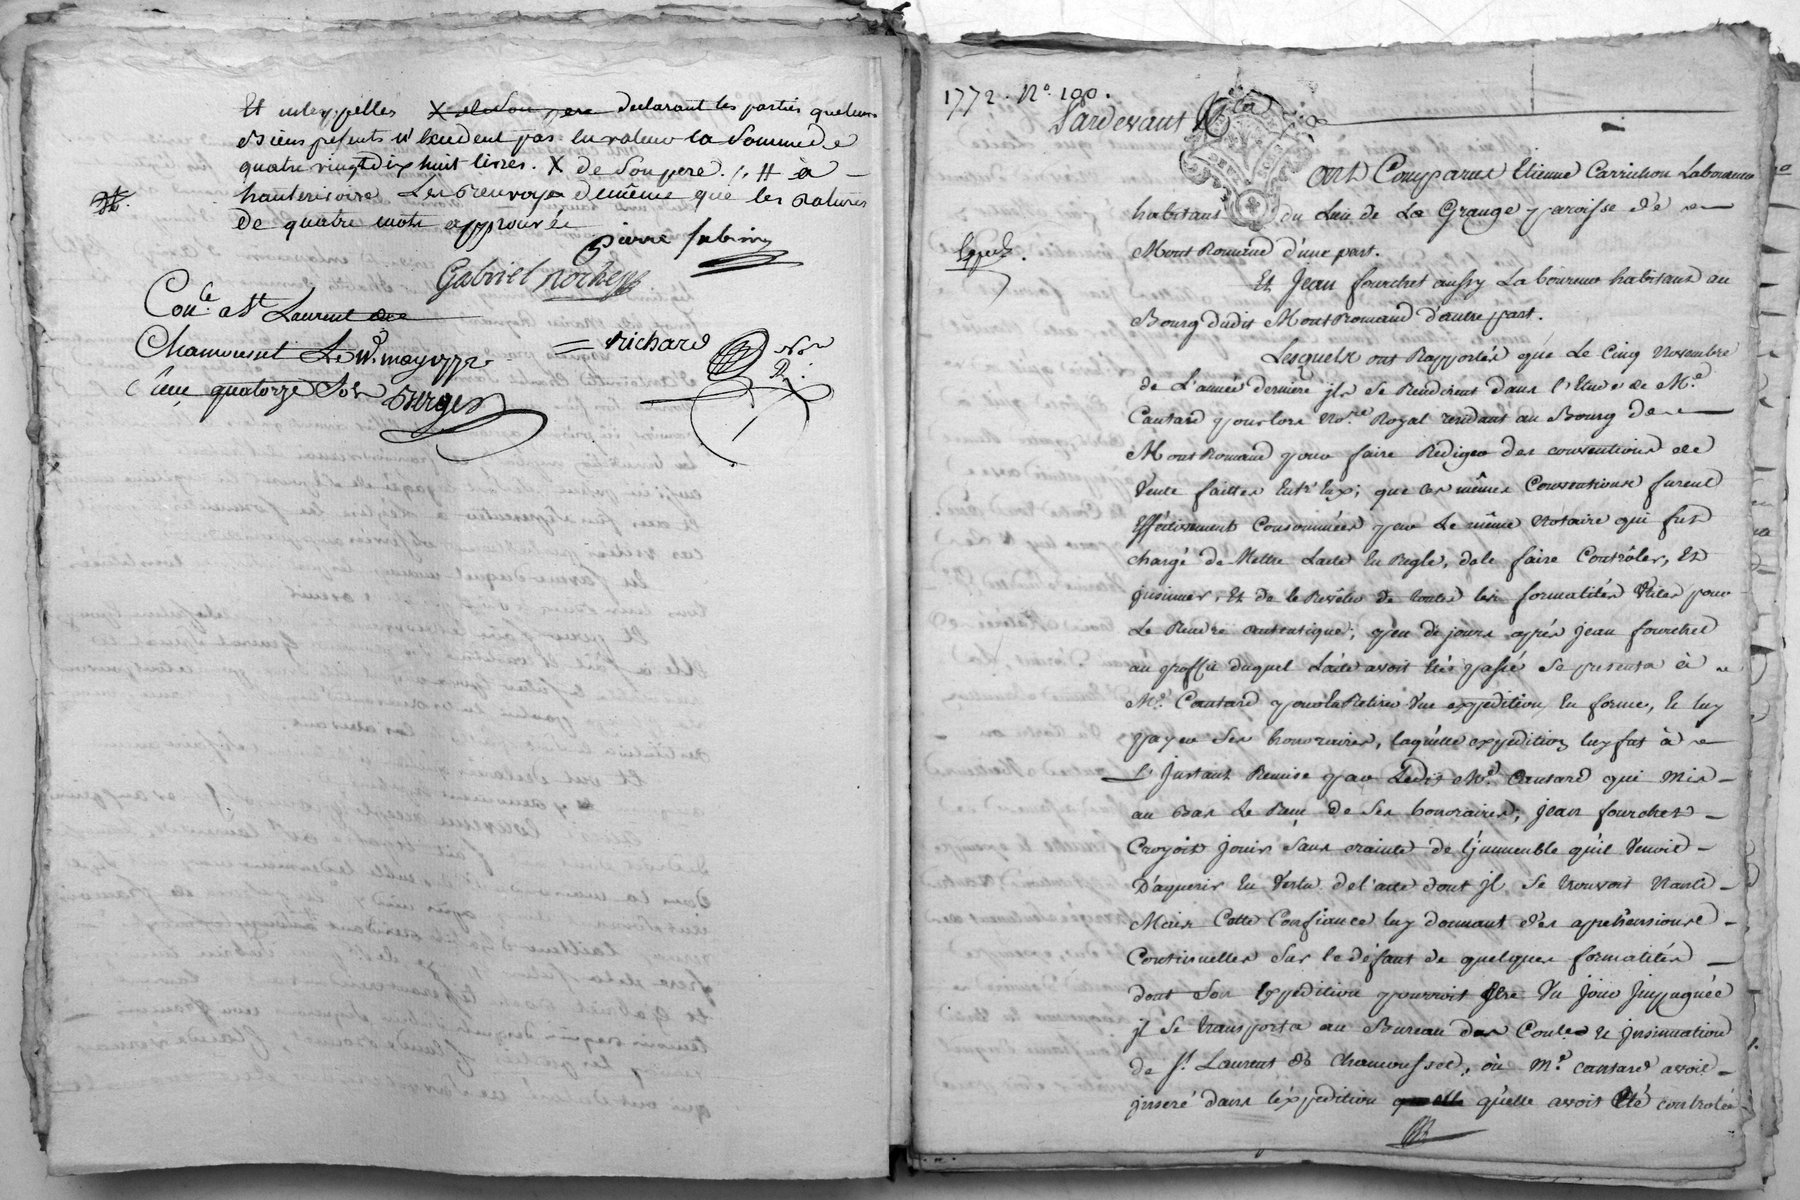 Et interpellés X et de Son pere declarant les parties que leurs
Biens présents n'Excedent pas En valeur la Somme de
quatre vingt dix huit livres. X de Son pere. /. # à
hauterivoire Les renvoys de même que les ratures
De quatre mots approuvée
pierre
Gabriel
Con.lé a St Laurent de
Chamousset Le may 1772
quatorze Sols Berger
richard
Nore
R.
1772. N.º 190.
Pardevant
Expedié.
ont Comparus Etienne Carrichon Laboureur
habitant du Lieu de La Grange paroisse de
Mont Romand d'une part.
Et Jean fourchet aussy Laboureur habitant au
Bourg dudit Mont Romand d'autre part.
Lesquels ont Rapportés que Le Cinq Novembre
de L'année derniere jls Se Rendirent dans l'Etude de M.e
Cantard pour lors No.re Royal residant au Bourg de
Mont Romand pour faire Rediger des conventions de
Vente faittes Entr'Eux; que ces mêmes Conventions furent
Effectivement Consommées par Le même Notaire qui fut
chargé de Mettre L'acte En Regle, de le faire Contrôler, Et
jnsinuer, Et de le Revêtir de toutes les formalités Utiles pour
Le Rendre autentique; peu de jours après jean fourchet
au proffit duquel L'acte avoit Eté passé Se presenta à
M.e Cantard pour En Retirer Une expedition En forme, Et luy
payer Ses honoraires, laquelle expedition luy fut à
L'Jnstant Remise par Ledit M.e Cantard qui mis
au Bas Le Reçu de Ses honoraires; jean fourchet
Croyoit Jouir Sans crainte de l'jmmeuble qu'il Venoit
D'aquerir En Vertu de l'acte dont jl Se trouvoit Nanti
Mais Cette Confiance luy donnant des aprehensions
Continuelles Sur le défaut de quelques formalités
dont Son Expedition pourroit Etre Un Jour Jmpugnée
jl Se transporta au Bureau des Con.le et jnsinuation
de S.t Laurent de chamousset, où M.e cantard avoit
jnseré dans l'expedition qu'elle avoit Eté controlée